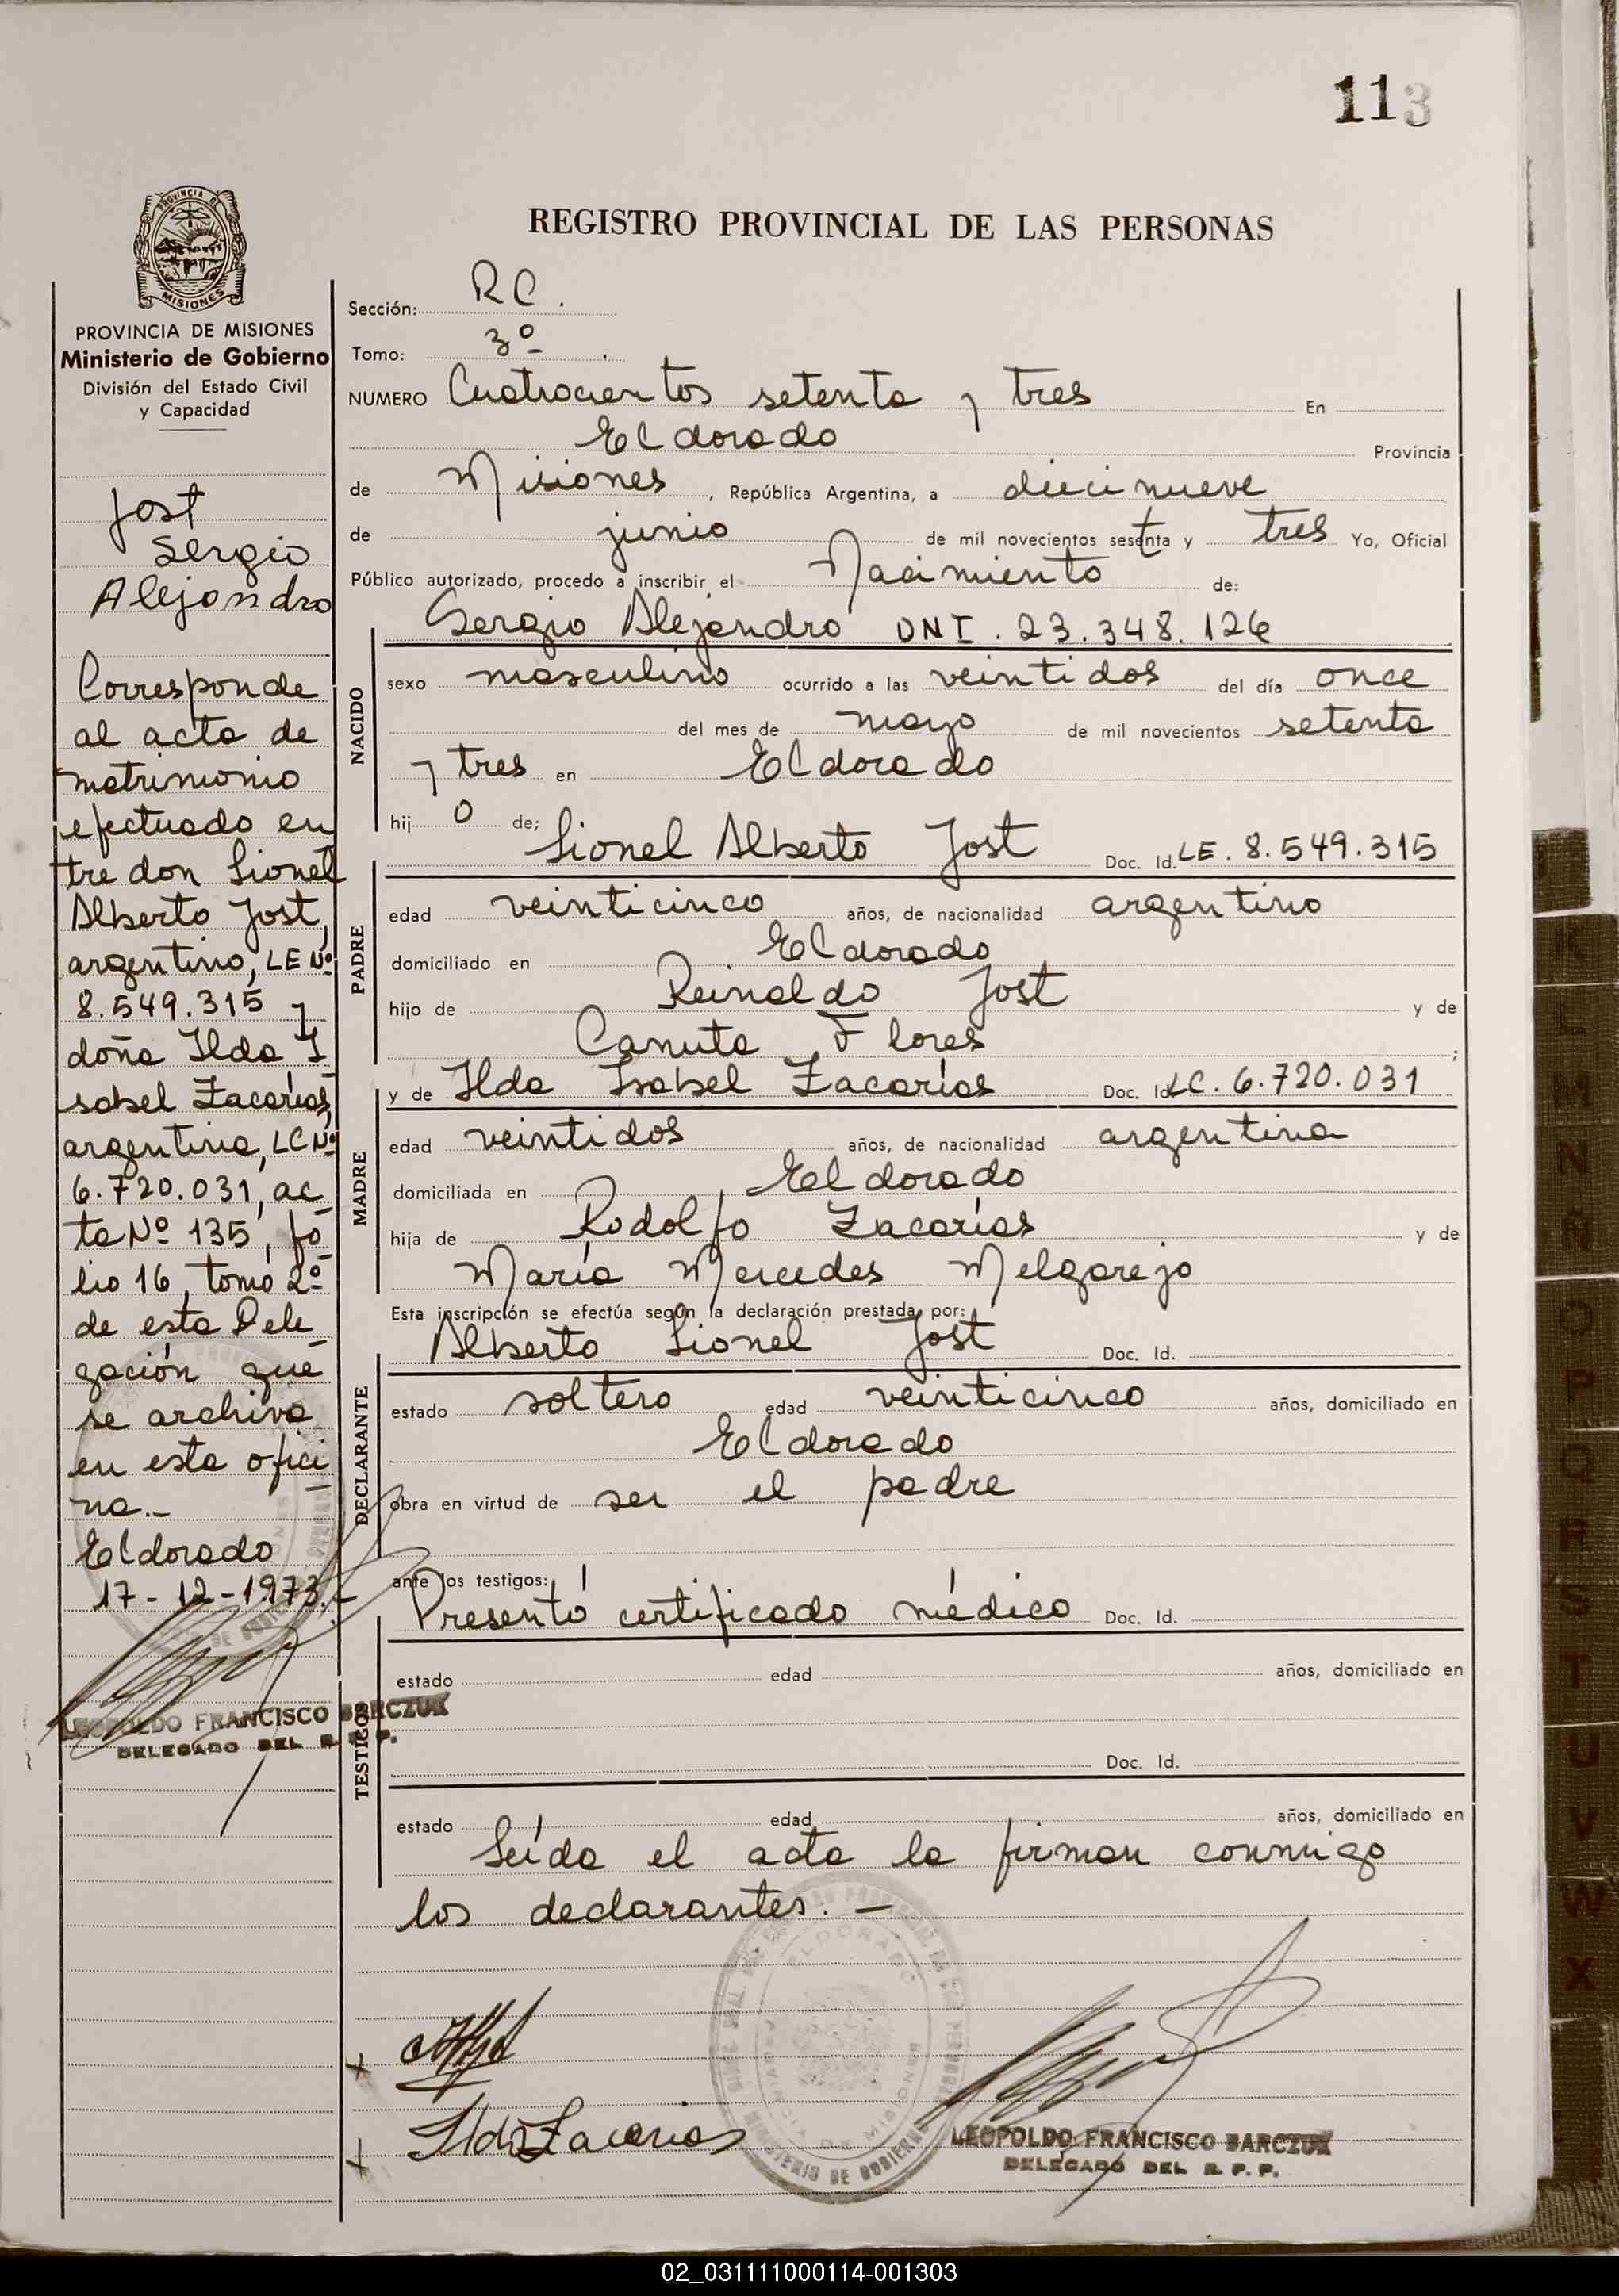 113
REGISTRO PROVINCIAL DE LAS PERSONAS
PROVINCIA DE
MISIONES
PROVINCIA DE MISIONES
Ministerio de Gobierno
División del Estado Civil
y Capacidad
Jost
Sergio
Alejandro
Corresponde
al acta de
matrimonio
efectuado en
tre don Lionel
Alberto Jost,
argentino, LE Nº
8.549.315 y
doña Ilda I
sabel Zacarías,
argentina, LC Nº
6.720.031, ac
ta Nº 135, fo
lio 16, tomo 2º
de esta Dele
gación que
se archiva
en esta ofici
na.-
Eldorado
17-12-1973.-
LEOPOLDO FRANCISCO BARCZUK
DELEGADO DEL R. P. P.
Sección: RC.
Tomo: 3º
NUMERO Cuatrocientos setenta y tres En
Eldorado Provincia
de Misiones, República Argentina, a diecinueve
de junio de mil novecientos setenta y tres Yo, Oficial
Público autorizado, procedo a inscribir el Nacimiento de:
Sergio Alejandro DNI. 23.348.126
NACIDO
sexo masculino ocurrido a las veintidos del día once
del mes de mayo de mil novecientos setenta
y tres en Eldorado
hij o de;
Lionel Alberto Jost Doc. Id. LE. 8.549.315
PADRE
edad veinticinco años, de nacionalidad argentino
domiciliado en Eldorado
hijo de Reinaldo Jost y de
Canuta Flores;
y de Ilda Isabel Zacarías Doc. Id. LC. 6.720.031
MADRE
edad veintidos años, de nacionalidad argentina
domiciliada en Eldorado
hija de Rodolfo Zacarías y de
María Mercedes Melgarejo
Esta inscripción se efectúa según la declaración prestada por:
Alberto Lionel Jost Doc. Id.
DECLARANTE
estado soltero edad veinticinco años, domiciliado en
Eldorado
obra en virtud de ser el padre
ante los testigos:
Presentó certificado médico Doc. Id.
TESTIGOS
estado edad años, domiciliado en
Doc. Id.
estado edad años, domiciliado en
Leída el acta la firman conmigo
los declarantes. -
ELDORADO
MINISTERIO DE GOBIERNO
Ilda Zacarias
LEOPOLDO FRANCISCO BARCZUK
DELEGADO DEL R. P. P.
K
L
M
N
Ñ
O
P
Q
R
S
T
U
V
W
X
02_031111000114-001303